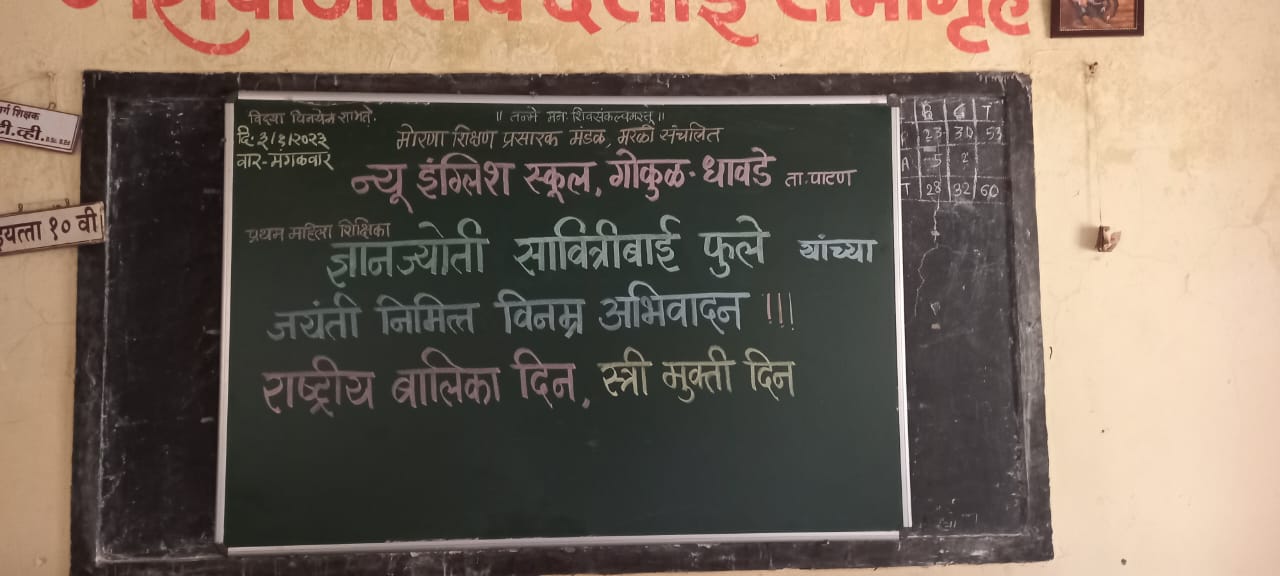 दत्ताई सभागृह
वर्ग शिक्षक
टी.व्ही.
इयत्ता १० वी
विद्या विनयेन शोभते.
॥ तन्मे मनः शिवसंकल्पमस्तु ॥
दि. ३/१/२०२३
मोरणा शिक्षण प्रसारक मंडळ, मरळी संचलित
वार-मंगळवार
न्यू इंग्लिश स्कूल, गोकुळ-धावडे ता.पाटण
प्रथम महिला शिक्षिका
ज्ञानज्योती सावित्रीबाई फुले यांच्या
जयंती निमित्त विनम्र अभिवादन !!!
राष्ट्रीय बालिका दिन, स्त्री मुक्ती दिन
B G T
P 23 30 53
A 5 2
T 28 32 60